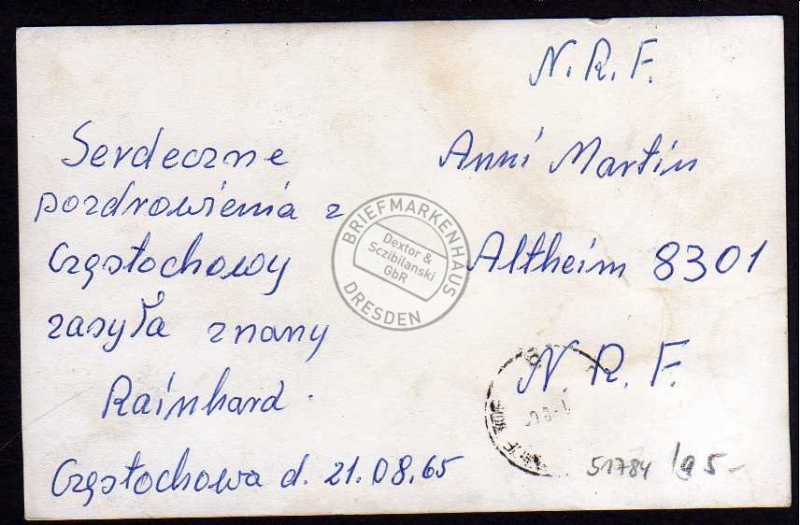 N. R. F.
Serdeczne
pozdrowienia z
Częstochowy
zasyła znany
Rainhard.
Częstochowa d. 21.08.65
Anni Martin
Altheim 8301
N. R. F.
BRIEFMARKENHAUS
Dextor &
Sczibilanski
GbR
DRESDEN
51784